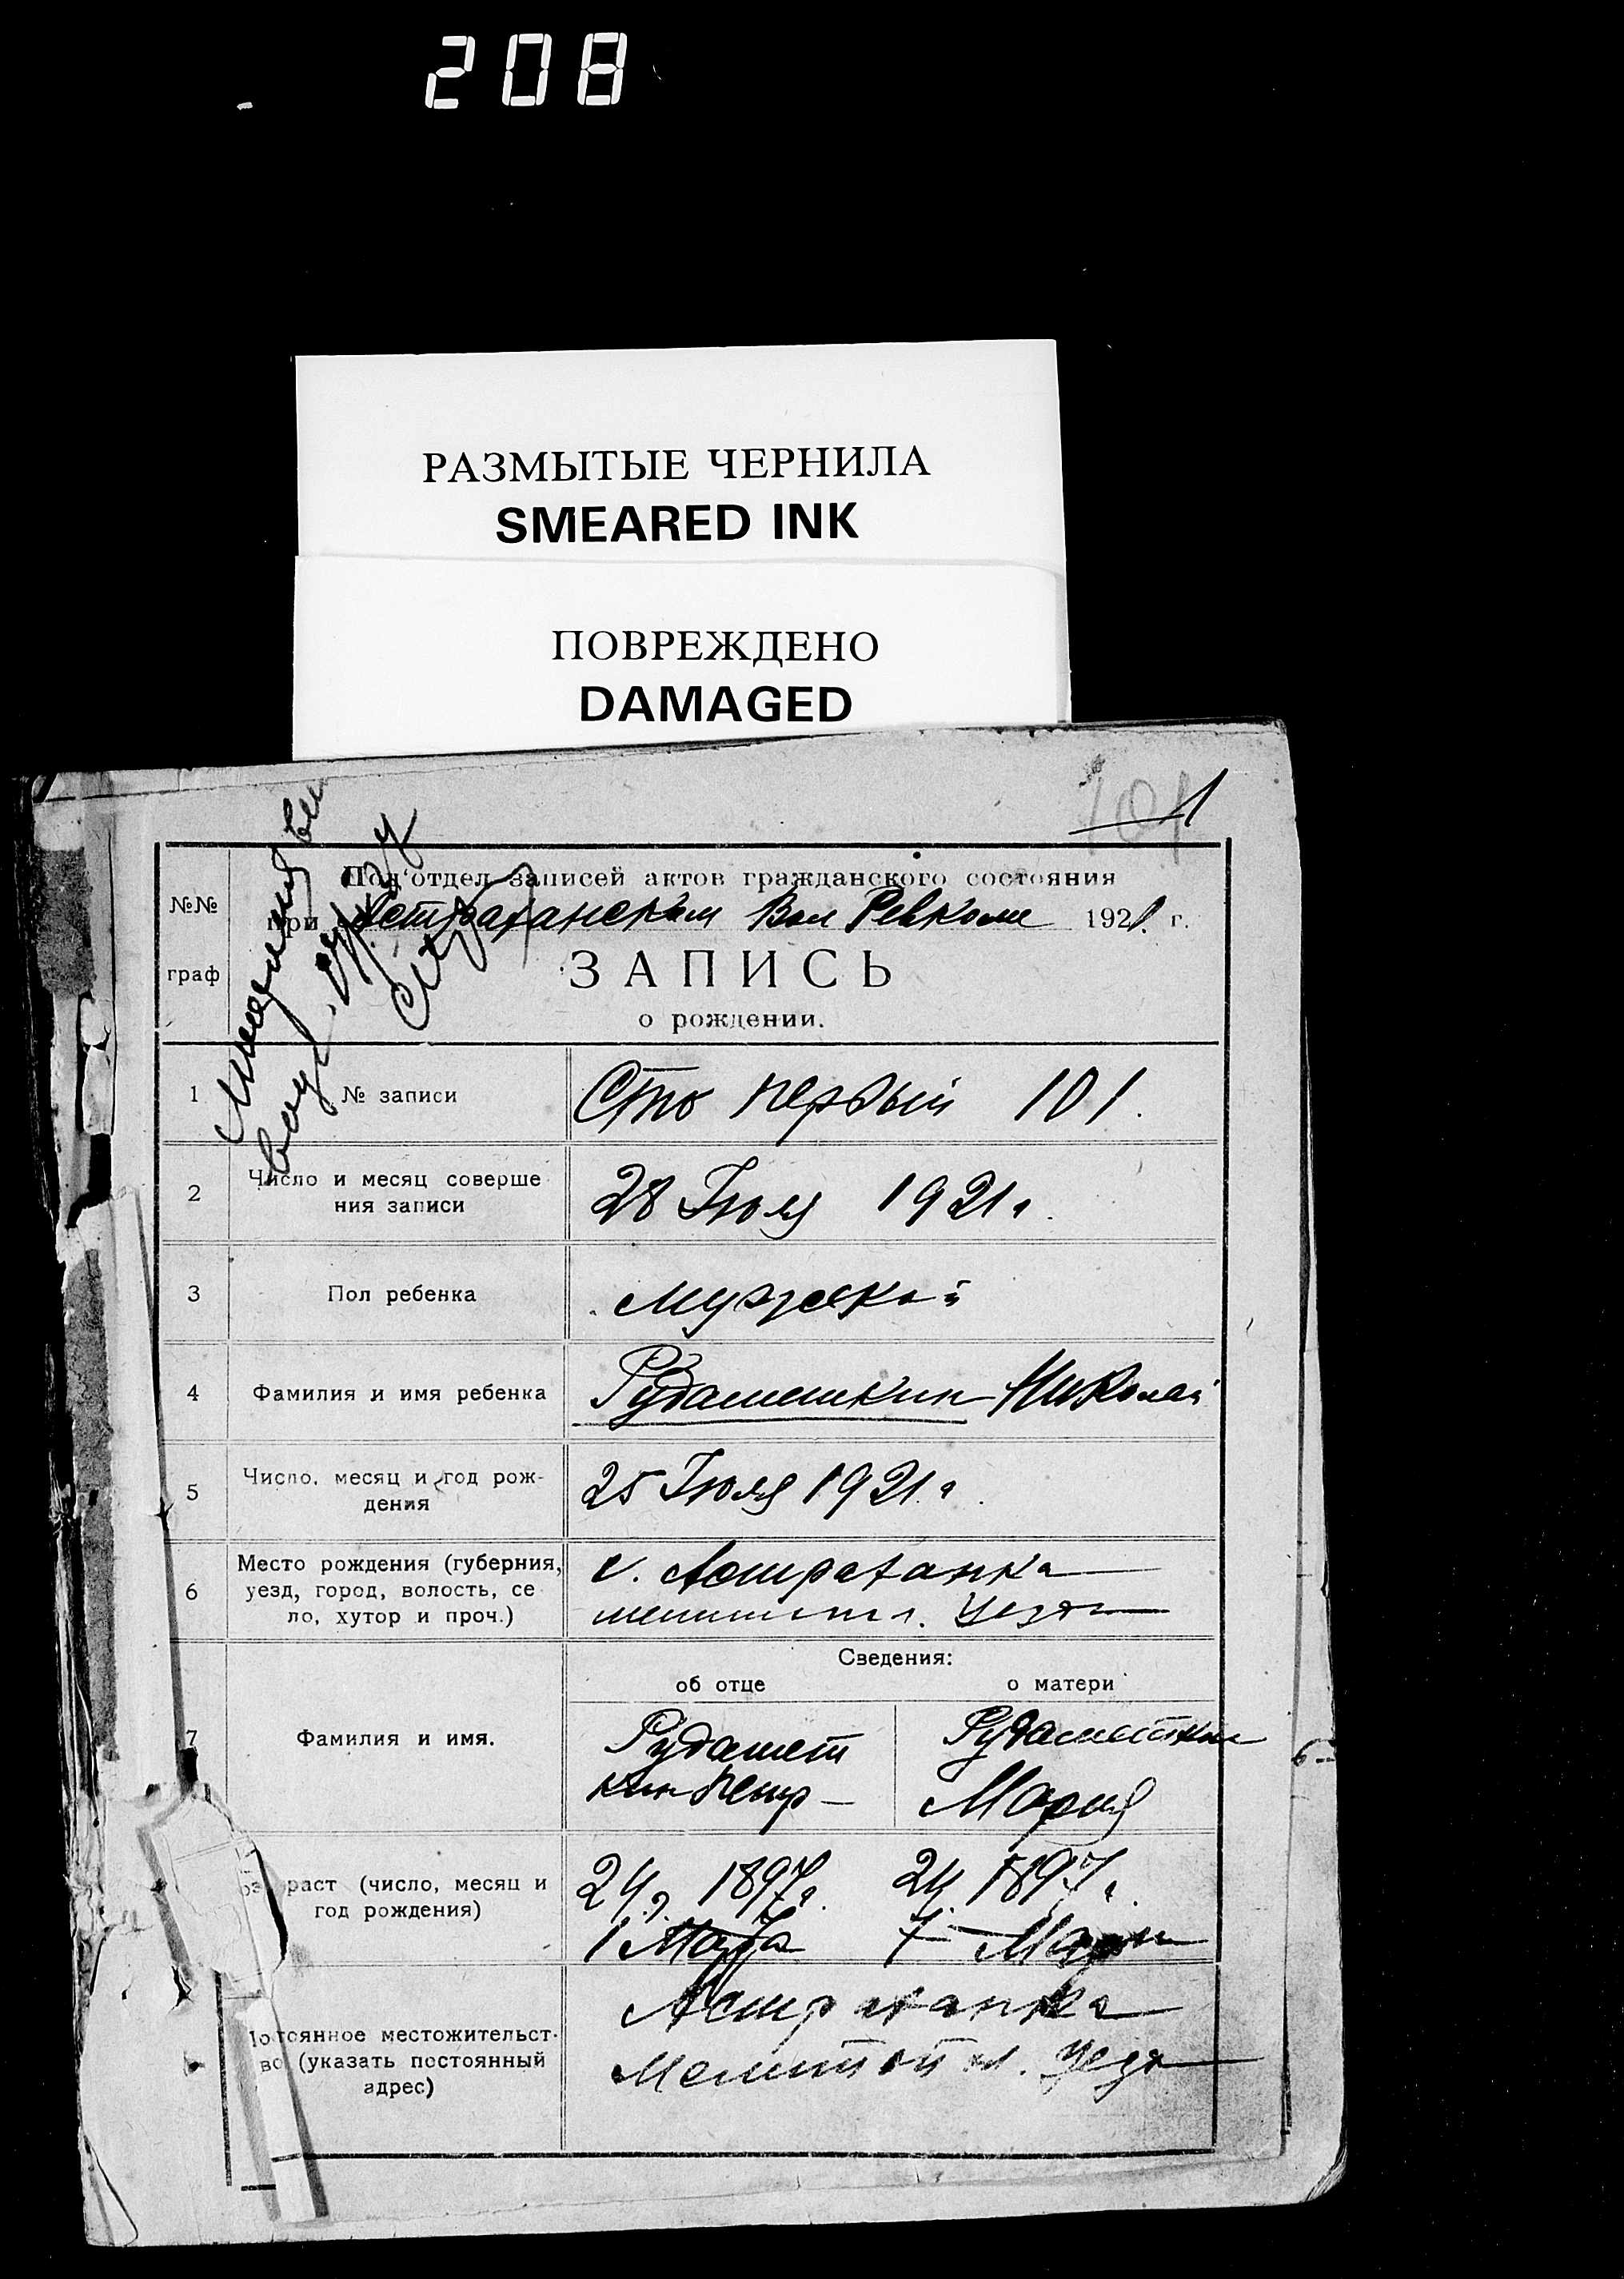 208
РАЗМЫТЫЕ ЧЕРНИЛА
SMEARED INK
ПОВРЕЖДЕНО
DAMAGED
101
1
Под'отдел записей актов гражданского состояния
№№
при Астраханском Вол Ревкоме 1921. г.
граф
ЗАПИСЬ
о рождении.
1
№ записи
Сто первый 101.
2
Число и месяц соверше
ния записи
28 Июля 1921 г.
3
Пол ребенка
Мужской
4
Фамилия и имя ребенка
Рудаметкин Николай
5
Число, месяц и год рож-
дения
25 Июля 1921 г.
6
Место рождения (губерния,
уезд, город, волость, се
ло, хутор и проч.)
с. Астраханка
уезда
Сведения:
об отце
о матери
7
Фамилия и имя.
Рудамет
кин Петр
Рудаметкин
Мария
раст (число, месяц и
год рождения)
24 г. 1897 г.
1 Марта
24 1897 г.
7 Марта
тоянное местожительст-
во (указать постоянный
адрес)
Астраханка
Мелитопол. уезда